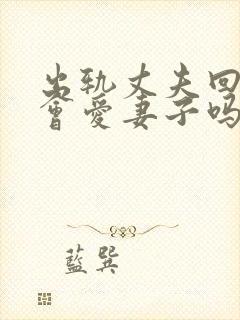 出轨丈夫回
會愛妻子吗
藍巽